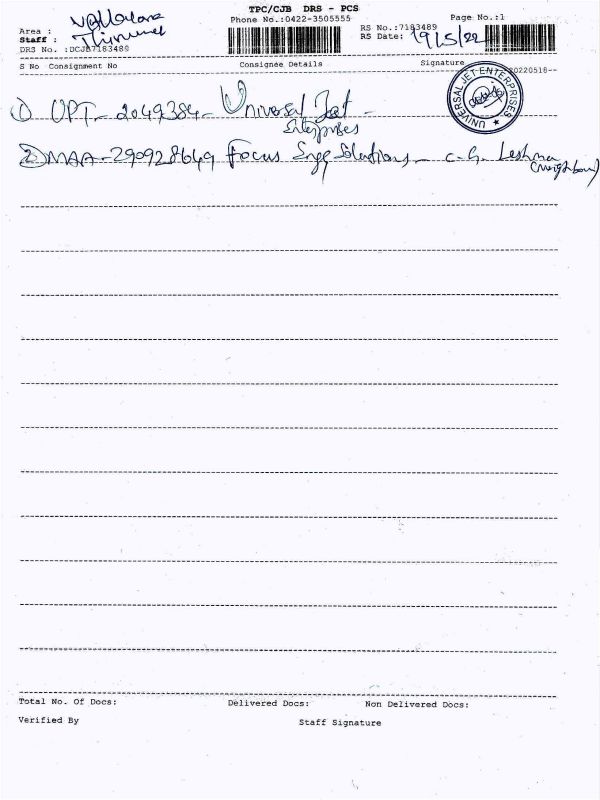 TPC/CJB DRS - PCS
Phone No.:0422-3505555
Page No.:1
Area :
Staff : Tirumal
DRS No. :DCJB7183489
RS No.:7183489
RS Date: 19/5/22
20220518--
S No Consignment No Consignee Details Signature
UNIVERSAL JET ENTERPRISES
① UPT - 2049384 - Universal Jet -
Enterprises
② MAA - 290928649 Focus Engg Solutions - C.G. Leshma
(neighbour)
Total No. Of Docs: Delivered Docs: Non Delivered Docs:
Verified By Staff Signature